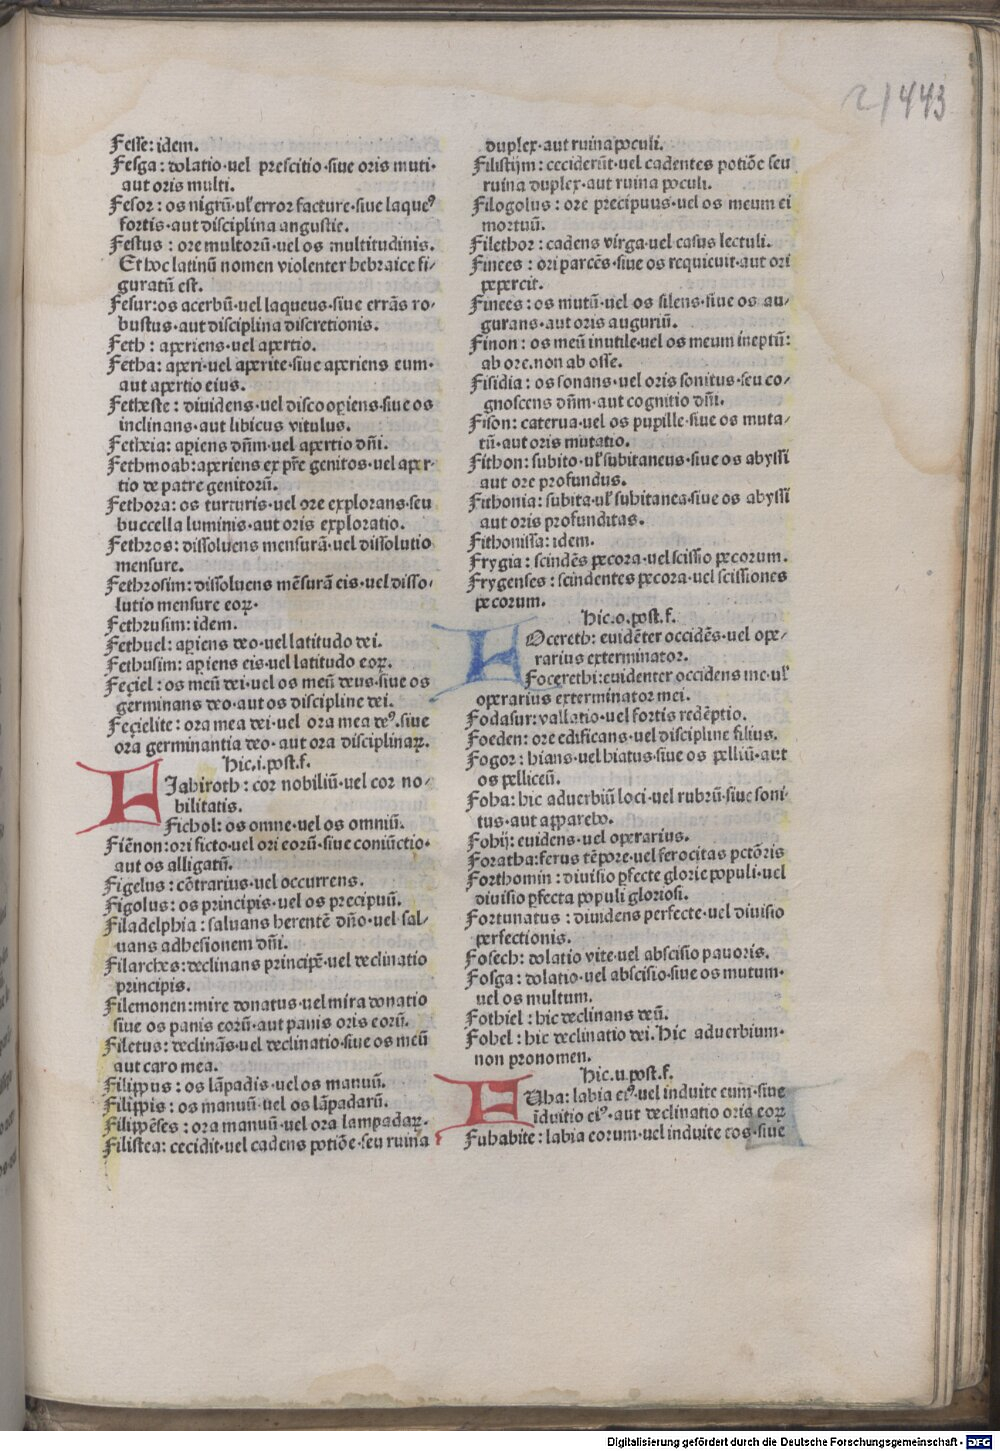 21443
Fesse: idem.
Fesga: dolatio·uel prescitio·siue oris muti·
aut oris multi.
Fesor: os nigrū·ul' error facture·siue laqueꝰ
fortis·aut disciplina angustie.
Festus: ore multorū·uel os multitudinis.
Et hoc latinū nomen violenter hebraice fi/
guratū est.
Fesur: os acerbū·uel laqueus·siue errās ro/
bustus·aut disciplina discretionis.
Feth: aperiens·uel apertio.
Fetha: aperi·uel aperite·siue aperiens eum·
aut apertio eius.
Fetheste: diuidens·uel discoopiens·siue os
inclinans·aut libicus vitulus.
Fethxia: apiens dn̄m·uel apertio dn̄i.
Fethmoab: aperiens ex pr̄e genitos·uel aper-
tio de patre genitorū.
Fethora: os turturis·uel ore explorans·seu
buccella luminis·aut oris exploratio.
Fethros: dissoluens mensurā·uel dissolutio
mensure.
Fethrosim: dissoluens mēsurā eis·uel disso/
lutio mensure eoꝝ·
Fethrusim: idem.
Fethuel: apiens deo·uel latitudo dei.
Fethusim: apiens eis·uel latitudo eoꝝ.
Feçiel: os meū dei·uel os meū deus·siue os
germinans deo·aut os discipline dei.
Feçielite: ora mea dei·uel ora mea deꝰ·siue
ora germinantia deo·aut ora disciplinaꝝ.
Hic.i.post.f.
FIabiroth: cor nobiliū·uel cor no/
bilitatis.
Fichol: os omne·uel os omniū.
Fiēnon: ori ficto·uel ori eorū·siue coniūctio·
aut os alligatū.
Figelus: cōtrarius·uel occurrens.
Figolus: os principis·uel os precipuū.
Filadelphia: saluans herentē dn̄o·uel sal/
uans adhesionem dn̄i.
Filarches: declinans principē·uel declinatio
principis.
Filemonen: mire donatus·uel mira donatio
siue os panis eorū·aut panis oris eorū.
Filetus: declinās·uel declinatio·siue os meū
aut caro mea.
Filippus: os lāpadis·uel os manuū.
Filippis: os manuū·uel os lāpadarū.
Filippēses: ora manuū·uel ora lampadaꝝ.
Filistea: cecidit·uel cadens potiōe·seu ruina
duplex·aut ruina poculi.
Filistijm: ceciderūt·uel cadentes potiōe seu
ruina duplex·aut ruina poculi.
Filogolus: ore precipuus·uel os meum ei
mortuū.
Filethor: cadens virga·uel casus lectuli.
Finees: ori parcēs·siue os requieuit·aut ori
pepercit.
Finees: os mutū·uel os silens·siue os au/
gurans·aut oris auguriū.
Finon: os meū inutile·uel os meum ineptū:
ab ore.non ab osse.
Fisidia: os sonans·uel oris sonitus·seu co/
gnoscens dn̄m·aut cognitio dn̄i.
Fison: caterua·uel os pupille·siue os muta/
tū·aut oris mutatio.
Fithon: subito·ul' subitaneus·siue os abyssi
aut ore profundus.
Fithonia: subita·ul' subitanea·siue os abyssi
aut oris profunditas.
Fithonissa: idem.
Frygia: scindēs pecora·uel scissio pecorum.
Frygenses: scindentes pecora·uel scissiones
pecorum.
Hic.o.post.f.
FOcereth: euidēter occidēs·uel ope/
rarius exterminator.
Focerethi: euidenter occidens me·ul'
operarius exterminator mei.
Fodasur: vallatio·uel fortis redēptio.
Foeden: ore edificans·uel discipline filius.
Fogor: hians·uel hiatus·siue os pelliū·aut
os pelliceū.
Foba: hic aduerbiū loci·uel rubrū·siue soni-
tus·aut apparebo.
Fobij: euidens·uel operarius.
Foratha: ferus tēpore·uel ferocitas pctōris
Forthomin: diuisio pfecte glorie populi·uel
diuisio pfecta populi gloriosi.
Fortunatus: diuidens perfecte·uel diuisio
perfectionis.
Fosech: dolatio vite·uel abscisio pauoris.
Fosga: dolatio·uel abscisio·siue os mutum·
uel os multum.
Fothiel: hic declinans deū.
Fobel: hic declinatio dei. Hic aduerbium·
non pronomen.
Hic.u.post.f.
FUha: labia eiꝰ·uel induite eum·siue
īduitio eiꝰ·aut declinatio oris eoꝝ
Fuhabite: labia eorum·uel induite eos·siue
Digitalisierung gefördert durch die Deutsche Forschungsgemeinschaft - DFG